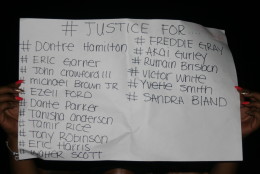 # JUSTICE FOR
# Dontre Hamilton
# ERIC Garner
# John crawford III
# michael Brown JR
# EZell FORD
# Dante Parker
# Tanisha anderson
# Tamir Rice
# Tony Robinson
# Eric Harris
# WALTER SCOTT
# FREDDIE GRAY
# Akai Gurley
# Rumain Brisbon
# Victor White
# Yvette Smith
# SANDRA BLAND